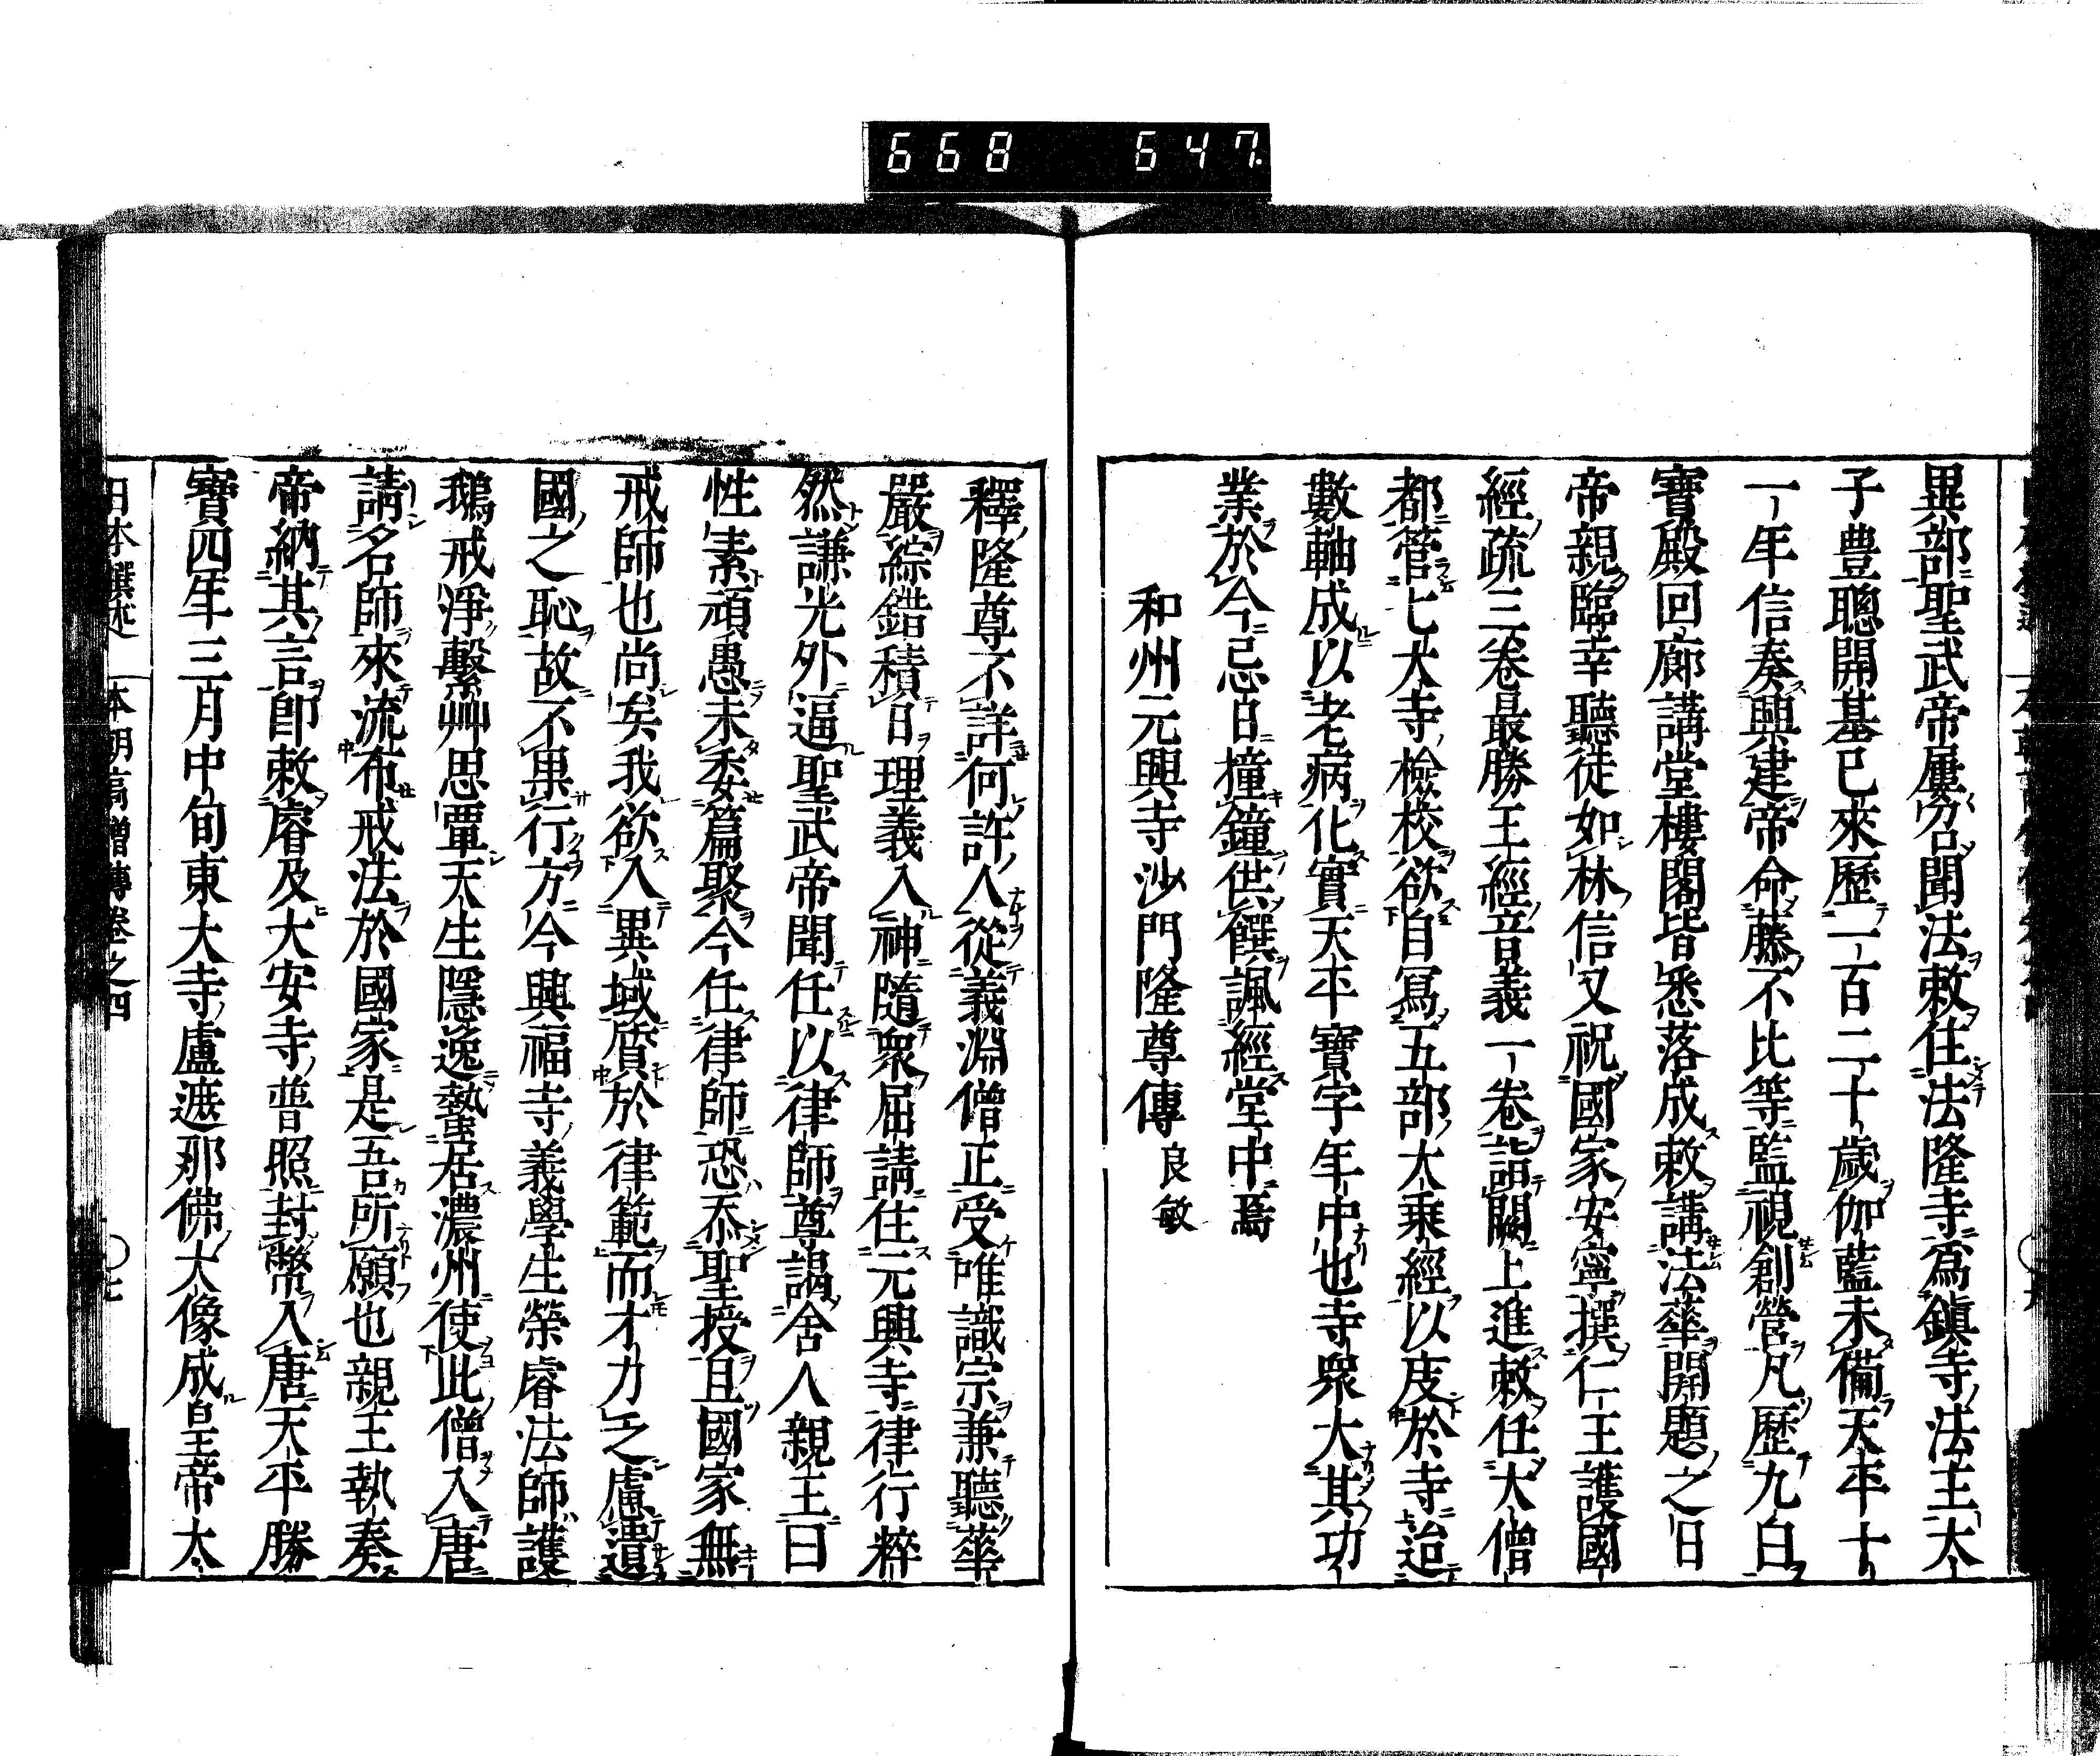 668 647
異部聖武帝屢召聞法敕住法隆寺爲鎭寺法主太
子豊聰開基已來歷一百二十歲伽藍未備天平十
一年信奏興建帝命藤不比等監視創營凡歷九白
寶殿回廊講堂樓閣皆悉落成敕講法華開題之日
帝親臨幸聽徒如林信又祝國家安寧撰仁王護國
經疏三卷最勝王經音義一卷詣闕上進敕任大僧
都管七大寺檢校欲自寫五部大乘經以庋於寺迨
數軸成以老病化實天平寶字年中也寺衆大其功
業於今忌日撞鐘供饌諷經堂中焉
和州元興寺沙門隆尊傳 良敏
釋隆尊不詳何許人從義淵僧正受唯識宗兼聽華
嚴綜錯積日理義入神隨衆屈請住元興寺律行粹
然謙光外逼聖武帝聞任以律師尊謁舍人親王曰
性素頑愚未委篇聚今任律師恐忝聖授且國家無
戒師也尚矣我欲入異域質於律範而才力乏慮遺
國之恥故不果行方今興福寺義學生榮睿法師護
鵝戒淨繫艸思覃天生隱逸蟄居濃州使此僧入唐
請名師來流布戒法於國家是吾所願也親王執奏
帝納其言卽敕睿及大安寺普照封幣入唐天平勝
寶四年三月中旬東大寺盧遮那佛大像成皇帝太
日本撰述 本朝高僧傳卷之四 〇七